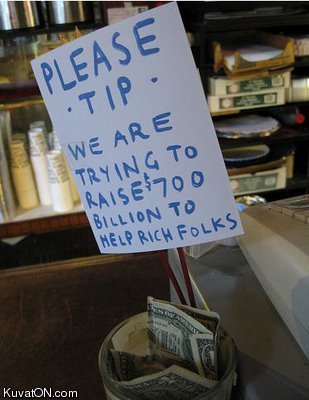 PLEASE
· TIP ·
WE ARE
TRYING TO
RAISE $700
BILLION TO
HELP RICH FOLKS
KuvatON.com